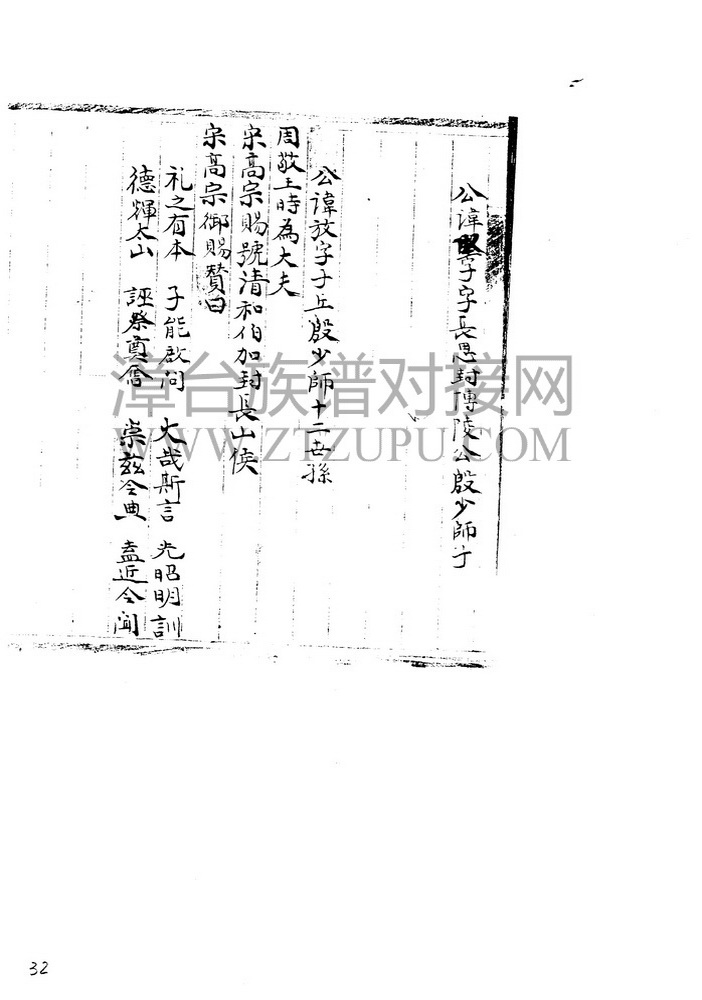 公諱堅字字長思封博陵公殷少師子
公諱放字子丘殷少師十二世孫
周敬王時為大夫
宋高宗賜號清和伯加封長山侯
宋高宗御賜贊曰
礼之有本 子能啟问 大哉斯言 光昭明訓
德輝太山 誣祭奠奮 崇茲令典 盍近令闻
漳台族谱对接网
WWW.ZTZUPU.COM
32